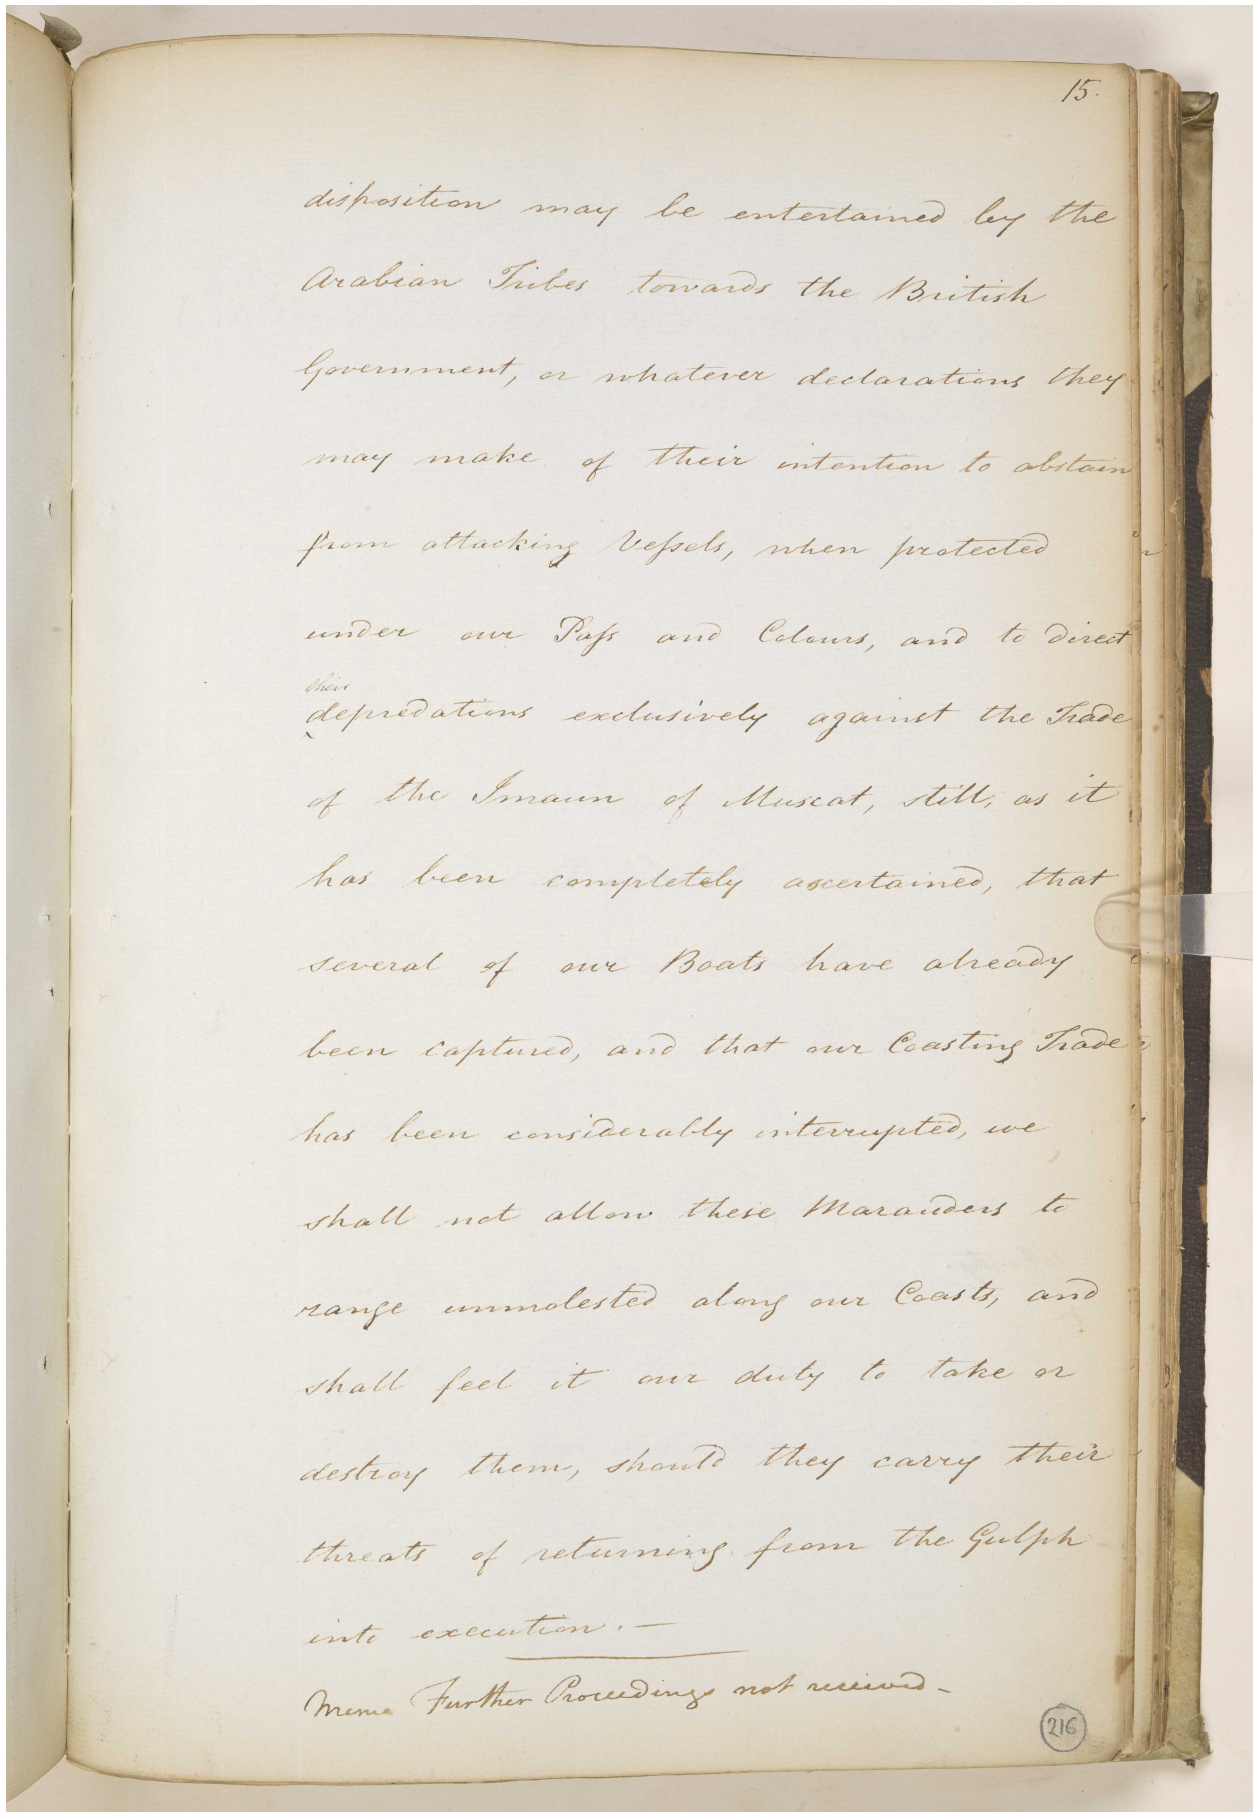 15.
disposition may be entertained by the
Arabian Tribes towards the British
Government, or whatever declarations they
may make of their intention to abstain
from attacking Vessels, when protected
under our Pass and Colours, and to direct
their
depredations exclusively against the Trade
of the Imaun of Muscat, still, as it
has been completely ascertained, that
several of our Boats have already
been captured, and that our Coasting Trade
has been considerably interrupted, we
shall not allow these Marauders to
range unmolested along our Coasts, and
shall feel it our duty to take or
destroy them, should they carry their
threats of returning from the Gulph
into execution. —
Memo Further Proceedings not received -
216